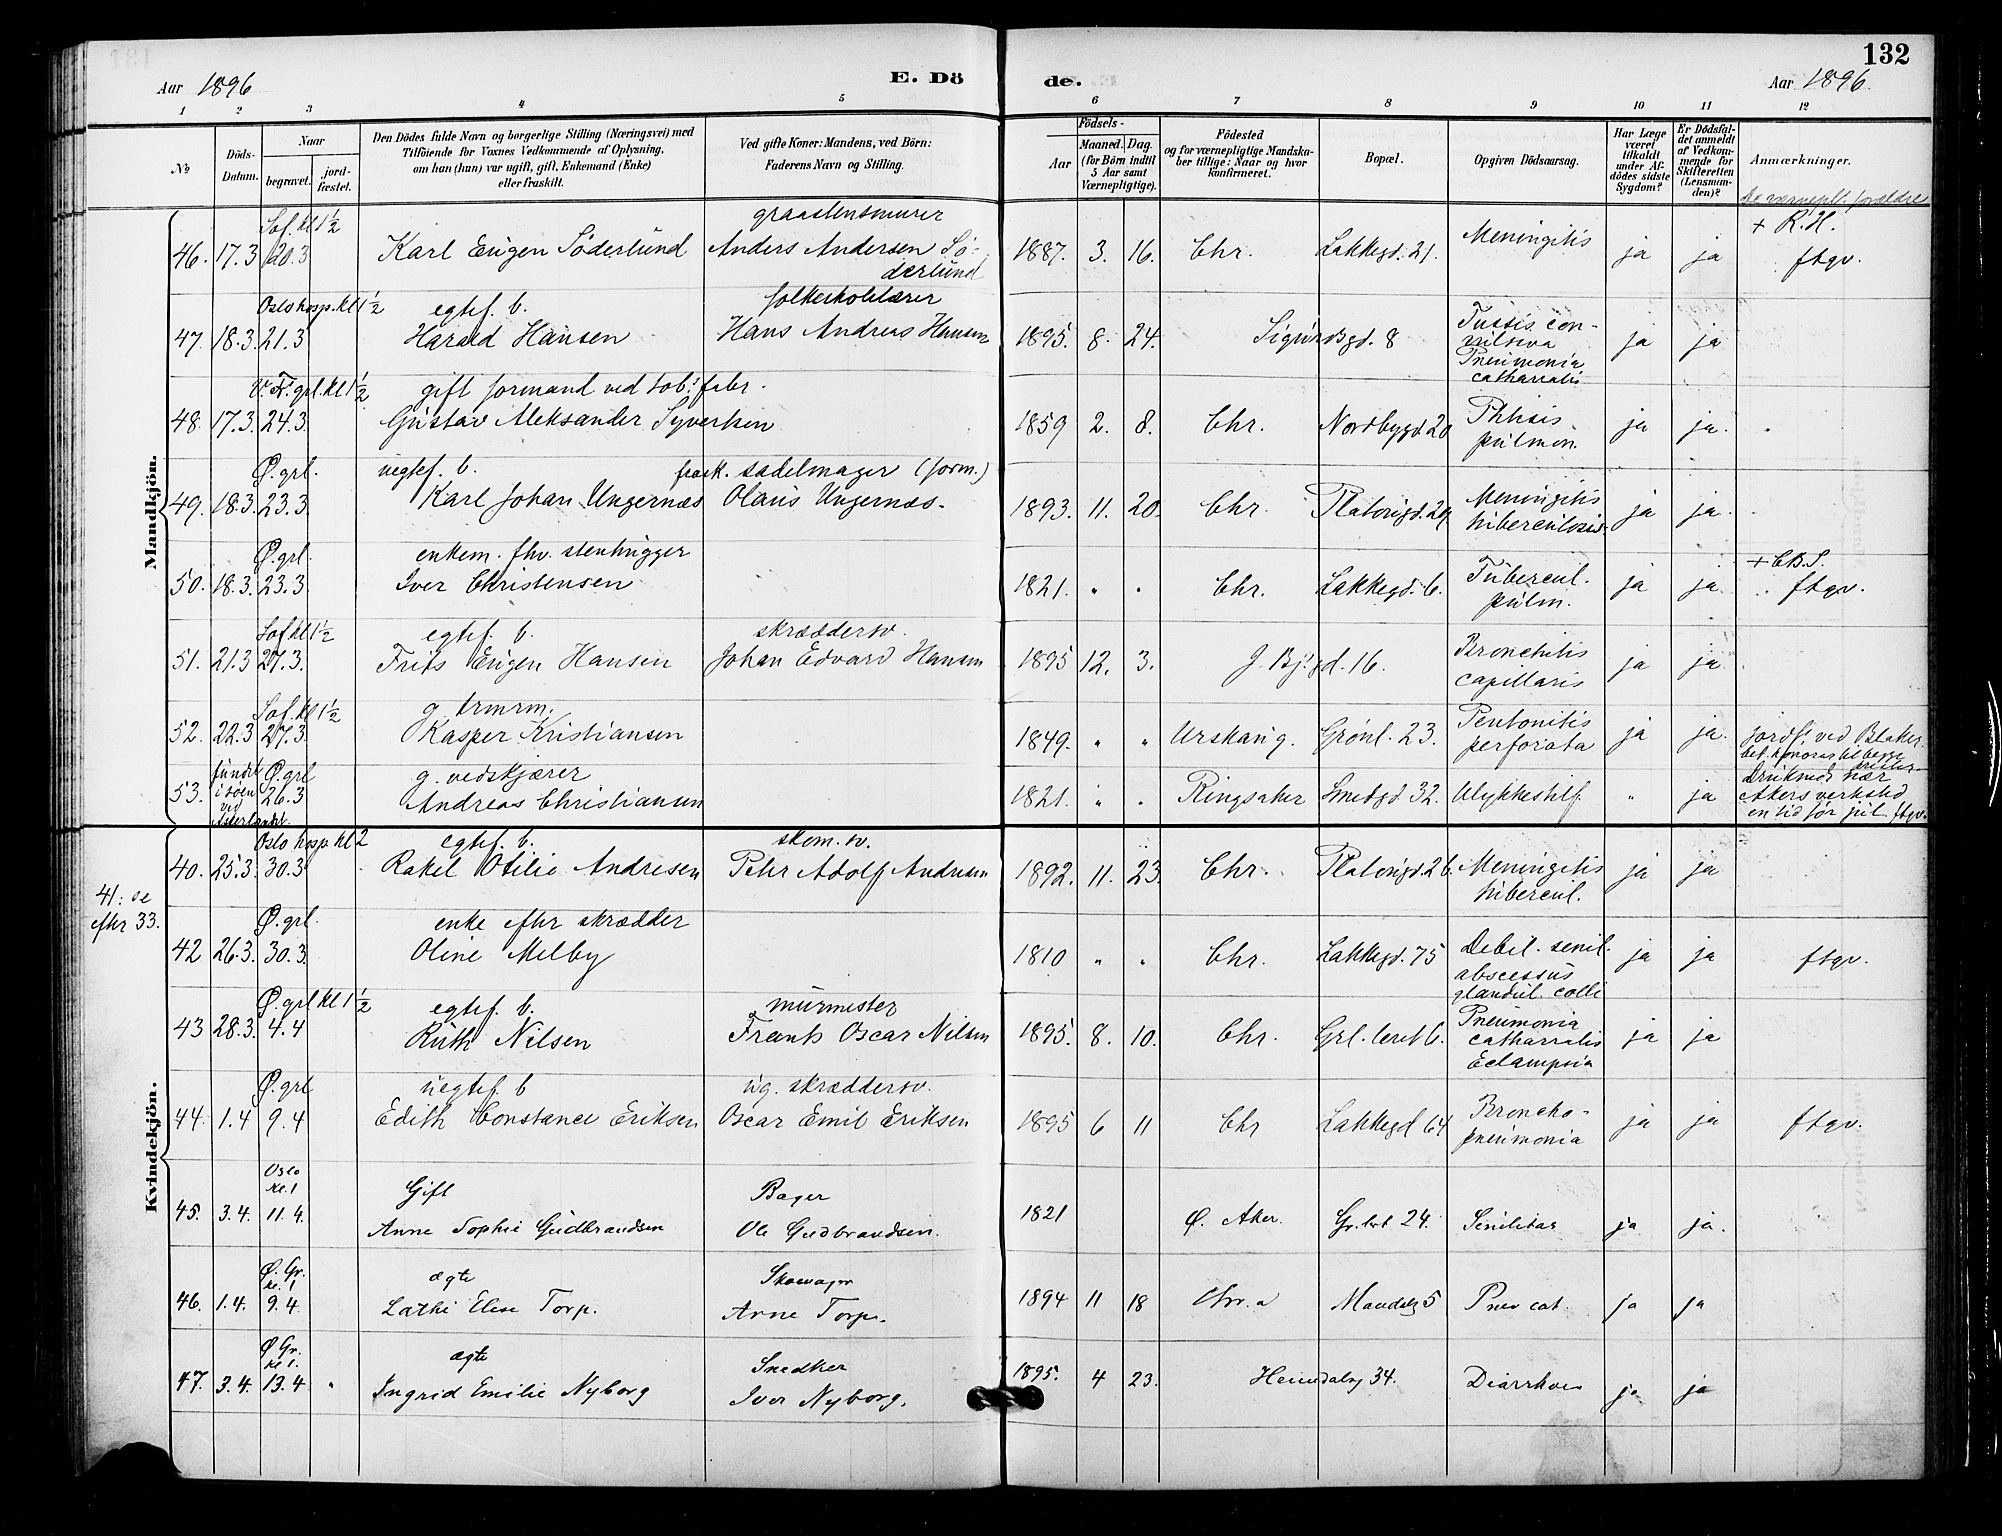 132
Aar 1896
E. Dö
de.
Aar 1896.
1 2 3 4 5 6 7 8 9 10 11 12
№
Döds-Datum.
Naar
begravet.
jord-fæstet.
Den Dödes fulde Navn og borgerlige Stilling (Næringsvei) med
Tilföiende for Voxnes Vedkommende af Oplysning,
om han (hun) var ugift, gift, Enkemand (Enke)
eller fraskilt.
Ved gifte Koner: Mandens, ved Börn:
Faderens Navn og Stilling.
Födsels-
Aar
Maaned. Dag.
(for Börn indtil
5 Aar samt
Værnepligtige).
Födested
og for værnepligtige Mandska-
ber tillige: Naar og hvor
konfirmeret.
Bopæl.
Opgiven Dödsaarsag.
Har Læge
været
tilkaldt
under Af-
dödes sidste
Sygdom?
Er Dödsfal-
det anmeldt
af Vedkom-
mende for
Skifteretten
(Lensman-
den)?
Anmærkninger.
Mandkjön.
Sof. kl 1½ graastensmurer + R.H.
46. 17.3 20.3 Karl Eugen Söderlund Anders Andersen Sö-
derlund 1887. 3. 16. Chr. Lakkegd. 21. Meningitis ja ja ftgv.
Oslo hosp. kl 1½ egtef. b. folkeskolelærer
47. 18.3. 21.3 Harald Hansen Hans Andreas Hansen 1895. 8. 24. Sigurdsgd. 8 Tussis con-
vulsiva
Pneumonia
catharralis ja ja
V. F. grl. kl 1½ gift formand ved tob. fabr.
48. 17.3. 24.3 Gustav Aleksander Syvertsen 1859 2. 8. Chr. Nordbygd. 20 Phtisis
pulmon. ja ja.
Ø. grl. uegtef. b. frask. sadelmager (form.)
49. 18.3. 23.3 Karl Johan Ungernæs Olaus Ungernæs. 1893. 11. 20. Chr. Platousgd. 29 Meningitis
tuberculosis. ja ja.
Ø. grl. enkem. fhv. stenhugger + C.B.S.
50. 18.3. 23.3 Iver Christensen 1821. " " Chr. Lakkegd. 6. Tubercul.
pulm. ja ja. ftgv.
Sof. kl 1½ egtef. b. skræddersv.
51. 21.3 27.3. Frits Eugen Hansen Johan Edvard Hansen 1895 12. 3. J. Bj. gd. 16. Bronchitis
capillaris ja ja
Sof. kl 1½ g. trmrm.
52. 22.3 27.3. Kasper Kristiansen 1849. " " Urskaug. Grönl. 23. Peritonitis
perforata ja ja. jordf. ved Blaker.
53. fundet
i söen
ved
Ø. grl
26.3 g. vedskjærer
Andreas Christiansen 1821. " " Ringsaker Smedgd. 32. Ulykkestilf. " ja Druknet nær
Akers verksted
en tid før jul. ftgv.
Kvindekjön.
Oslo hosp. kl 2 egtef. b. skom. sv.
40. 25.3. 30.3 Rakel Otilie Andresen Petter Adolf Andresen 1892. 11. 23. Chr. Platousgd. 26. Meningitis
tubercul. ja ja
41: se
efter 33.
Ø. grl. enke efter skrædder
42 26.3. 30.3 Oline Melby 1810 " " Chr. Lakkegd. 75 Debil. senil.
abscessus
glandul. colli ja ja ftgv.
Ø. grl kl 1½ egtef. b. murmester
43 28.3. 4.4 Ruth Nilsen Frants Oscar Nilsen 1895. 8. 10. Chr. Grl. leret 6. Pneumonia
catharralis
Eclampsia ja ja
Ø. grl uegtef. b ug. skræddersv.
44. 1.4 9.4 Edith Constance Eriksen Oscar Emil Eriksen 1895 6 11 Chr Lakkegd 64 Broncho-
pneumonia ja ja ftgv.
Oslo
kl. 1 Gift Bager
45. 3.4. 11.4. Anne Sophie Gudbrandsen Ole Gudbrandsen. 1821 Ø. Aker. Gr. lert 24. Senilitas ja ja.
Ø. Gr.
kl. 1 ægte Skomager
46. 1.4. 9.4. Elise Torp. Arne Torp. 1894 11 18 Chr.a Mandalsg 5 Pnev cat. ja ja
Ø Gr.
kl 1. ægte Snedker
47. 3.4. 13.4 " Ingrid Emilie Nyborg Iver Nyborg. 1895. 4 23. Heimdalsg 34. Diarrhoe ja ja